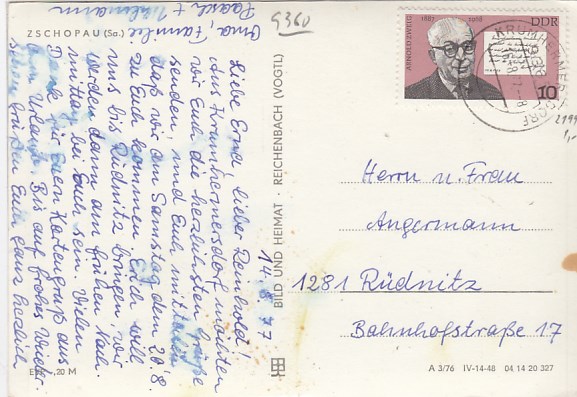 ZSCHOPAU (Sa.)
14.8.77
Liebe Erna, lieber Reinhold!
Aus Krumhermersdorf möchten
wir Euch die herzlichsten Grüße
senden, und Euch mitteilen
daß wir am Samstag den 20.8.
zu Euch kommen. Erich will
uns bis Rüdnitz bringen, wir
werden dann am frühen Nach-
mittag bei Euch sein. Vielen
Dank für Euren Kartengruß aus
dem Urlaub. Bis auf frohes Wieder-
sehen grüßen Euch ganz herzlich
Oma, Familie
EVP -,20 M
BILD UND HEIMAT · REICHENBACH (VOGTL)
9360
ARNOLD ZWEIG
1887 1968
DDR
10
KRUMHERMERSDORF
9361
2199
1,-
Herrn u. Frau
Angermann
1281 Rüdnitz
Bahnhofstraße 17
A 3/76 IV-14-48 04 14 20 327